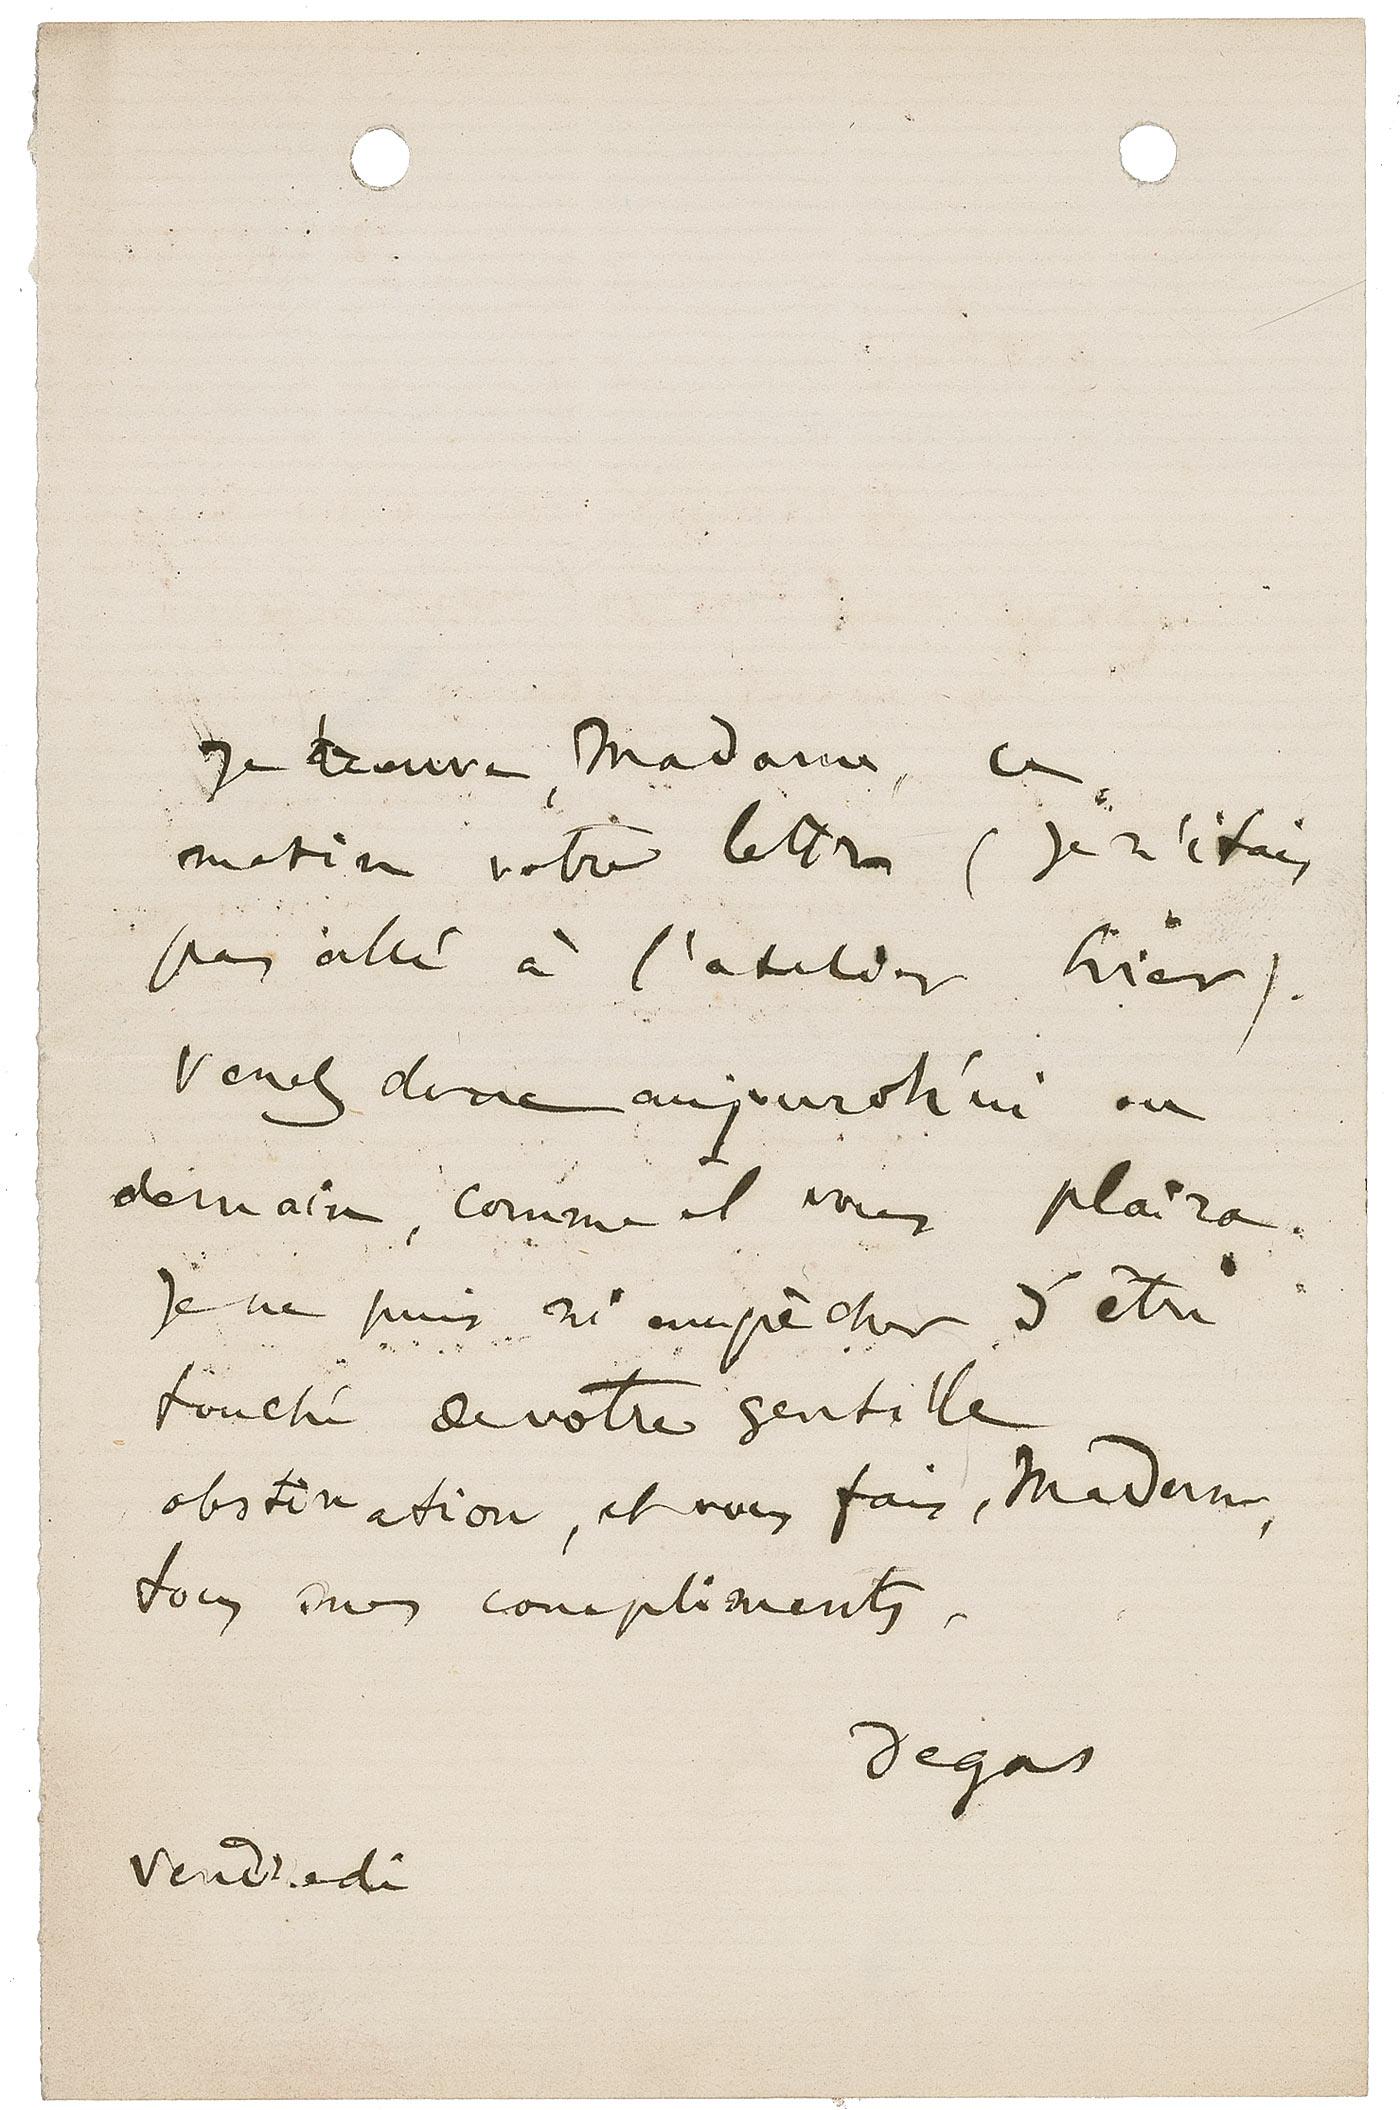 Je trouve, Madame, ce
matin votre lettre (je n'étais
pas allé à l'atelier hier).
Venez donc aujourd'hui ou
demain, comme il vous plaira.
Je ne puis m'empêcher d'être
touché de votre gentille
obstination, et vous fais, Madame,
tous mes compliments.
Degas
Vendredi